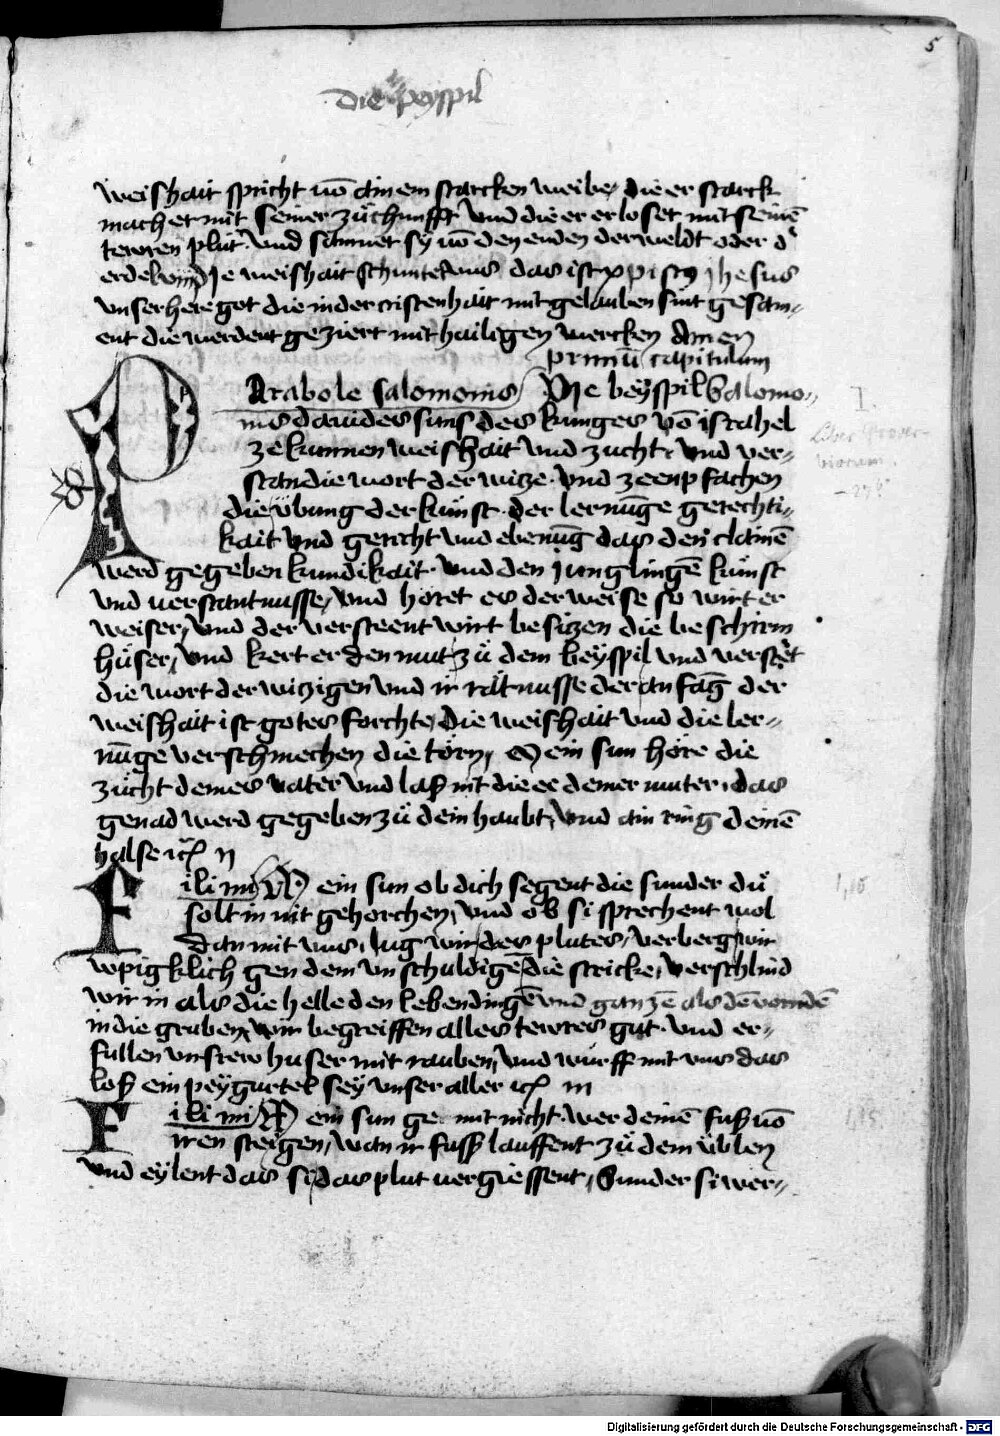 5
Die peyspil
weishait spricht vō ainem starcken weibe, die er starck
machet mit seiner zuͦchunfft Vnd die er erloset mit seinē
tewren plut. Vnd samnet sy vō den enden der weldt oder dʼ
erde vnd Je weishait das ist xp̄istꝰ Jhesus
vnser here got die in der cristenhait mit gelauben sint gesam⸗
ent die werdent geziert mit hailigen wercken Amen
primū capitulum
PArabole Salomonis Die beyspil Salomo⸗
nis dauides suns des kunges vō israhel
ze kunnen weishait vnd zucht, vnd ver⸗
stan die wort der witze. vnd ze enpfachen
die übung der künst. der lernūge gerechti⸗
kait vnd gericht vnd ebenūg das den clainē
werd gegeben kundikait. vnd den Junglingē künst
vnd verstantnusse, vnd höret es der weise so wirt er
weiser, vnd der versteent wirt besitzen die beschirm
hüser, vnd kert er den mut zuͦ dem beyspil vnd verstet
die wort der witzigen vnd ir rätnusse der anfāg der
weishait ist gotes forchte, die weishait vnd die ler⸗
nūge verschmechen die törn, Mein sun höre die
zücht deines vater vnd laß nit die ee deiner muter, das
genad werd gegeben zuͦ dein haubt, vnd ain ring deinē
halse ꝛcꝭ ij
Fili mi Mein sun ob dich segent die sunder du
solt in nit gehorchen, vnd ob si sprechent wol
dan mit vns, lug wir des plutes, verberg wir
vpigklich gen dem vnschuldigē die stricke, verschlind
wir in als die helle den lebendingē vnd ganzē als dē
in die gruben, wir begreiffen alles tewres gut. vnd er⸗
fullen vnsrew huser mit rauben, vnd würff mit vns das
loß ein peygürtel sey vnser aller ꝛcꝭ iij
Fili mi Mein sun ge mit nicht. wer deinē fuß vō
iren steigen, wan ir fuß lauffent zuͦ dem üblen
vnd eylent das si das plut vergiessent, Sunder si wer⸗
I.
Liber Prover-
biorum.
1,10
1,15.
Digitalisierung gefördert durch die Deutsche Forschungsgemeinschaft - DFG